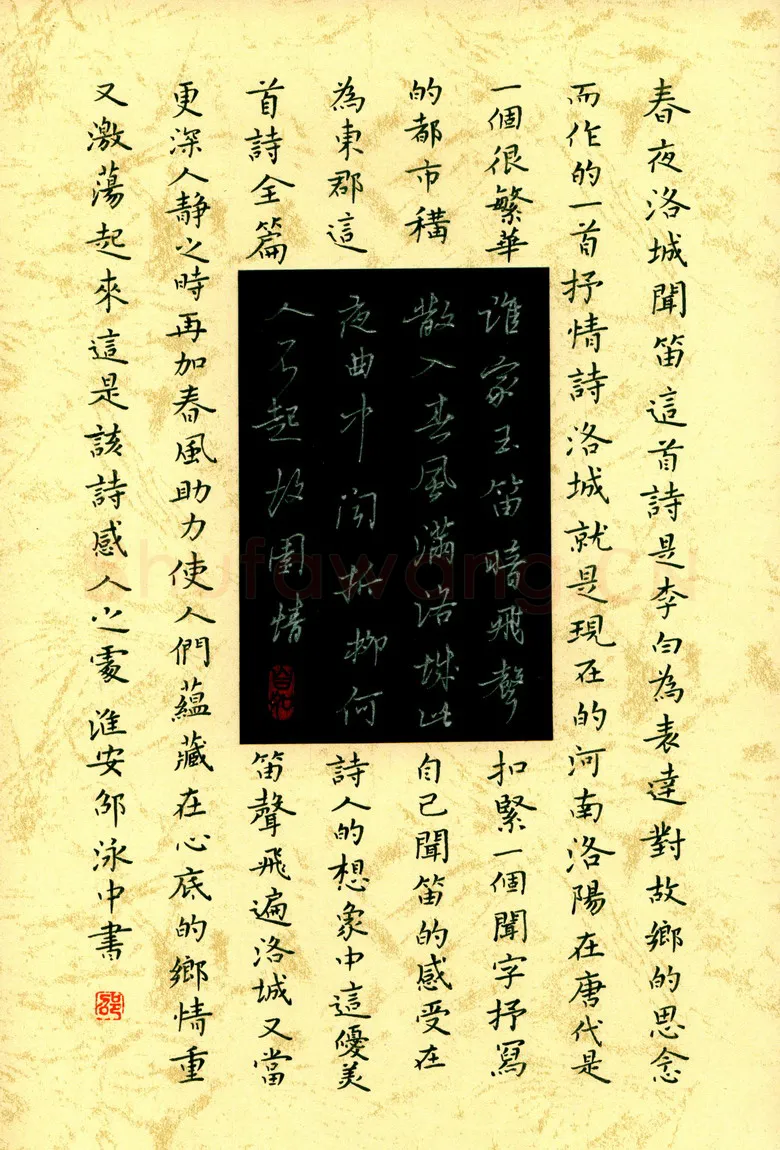 春夜洛城聞笛這首詩是李白為表達對故鄉的思念
而作的一首抒情詩洛城就是現在的河南洛陽在唐代是
一個很繁華
的都市稱
為東郡這
首詩全篇
誰家玉笛暗飛聲
散入春風滿洛城此
夜曲中聞折柳何
人不起故園情
扣緊一個聞字抒寫
自己聞笛的感受在
詩人的想象中這優美
笛聲飛遍洛城又當
更深人靜之時再加春風助力使人們蘊藏在心底的鄉情重
又激蕩起來這是該詩感人之處 淮安邵泳中書
邵
shufawang.cn